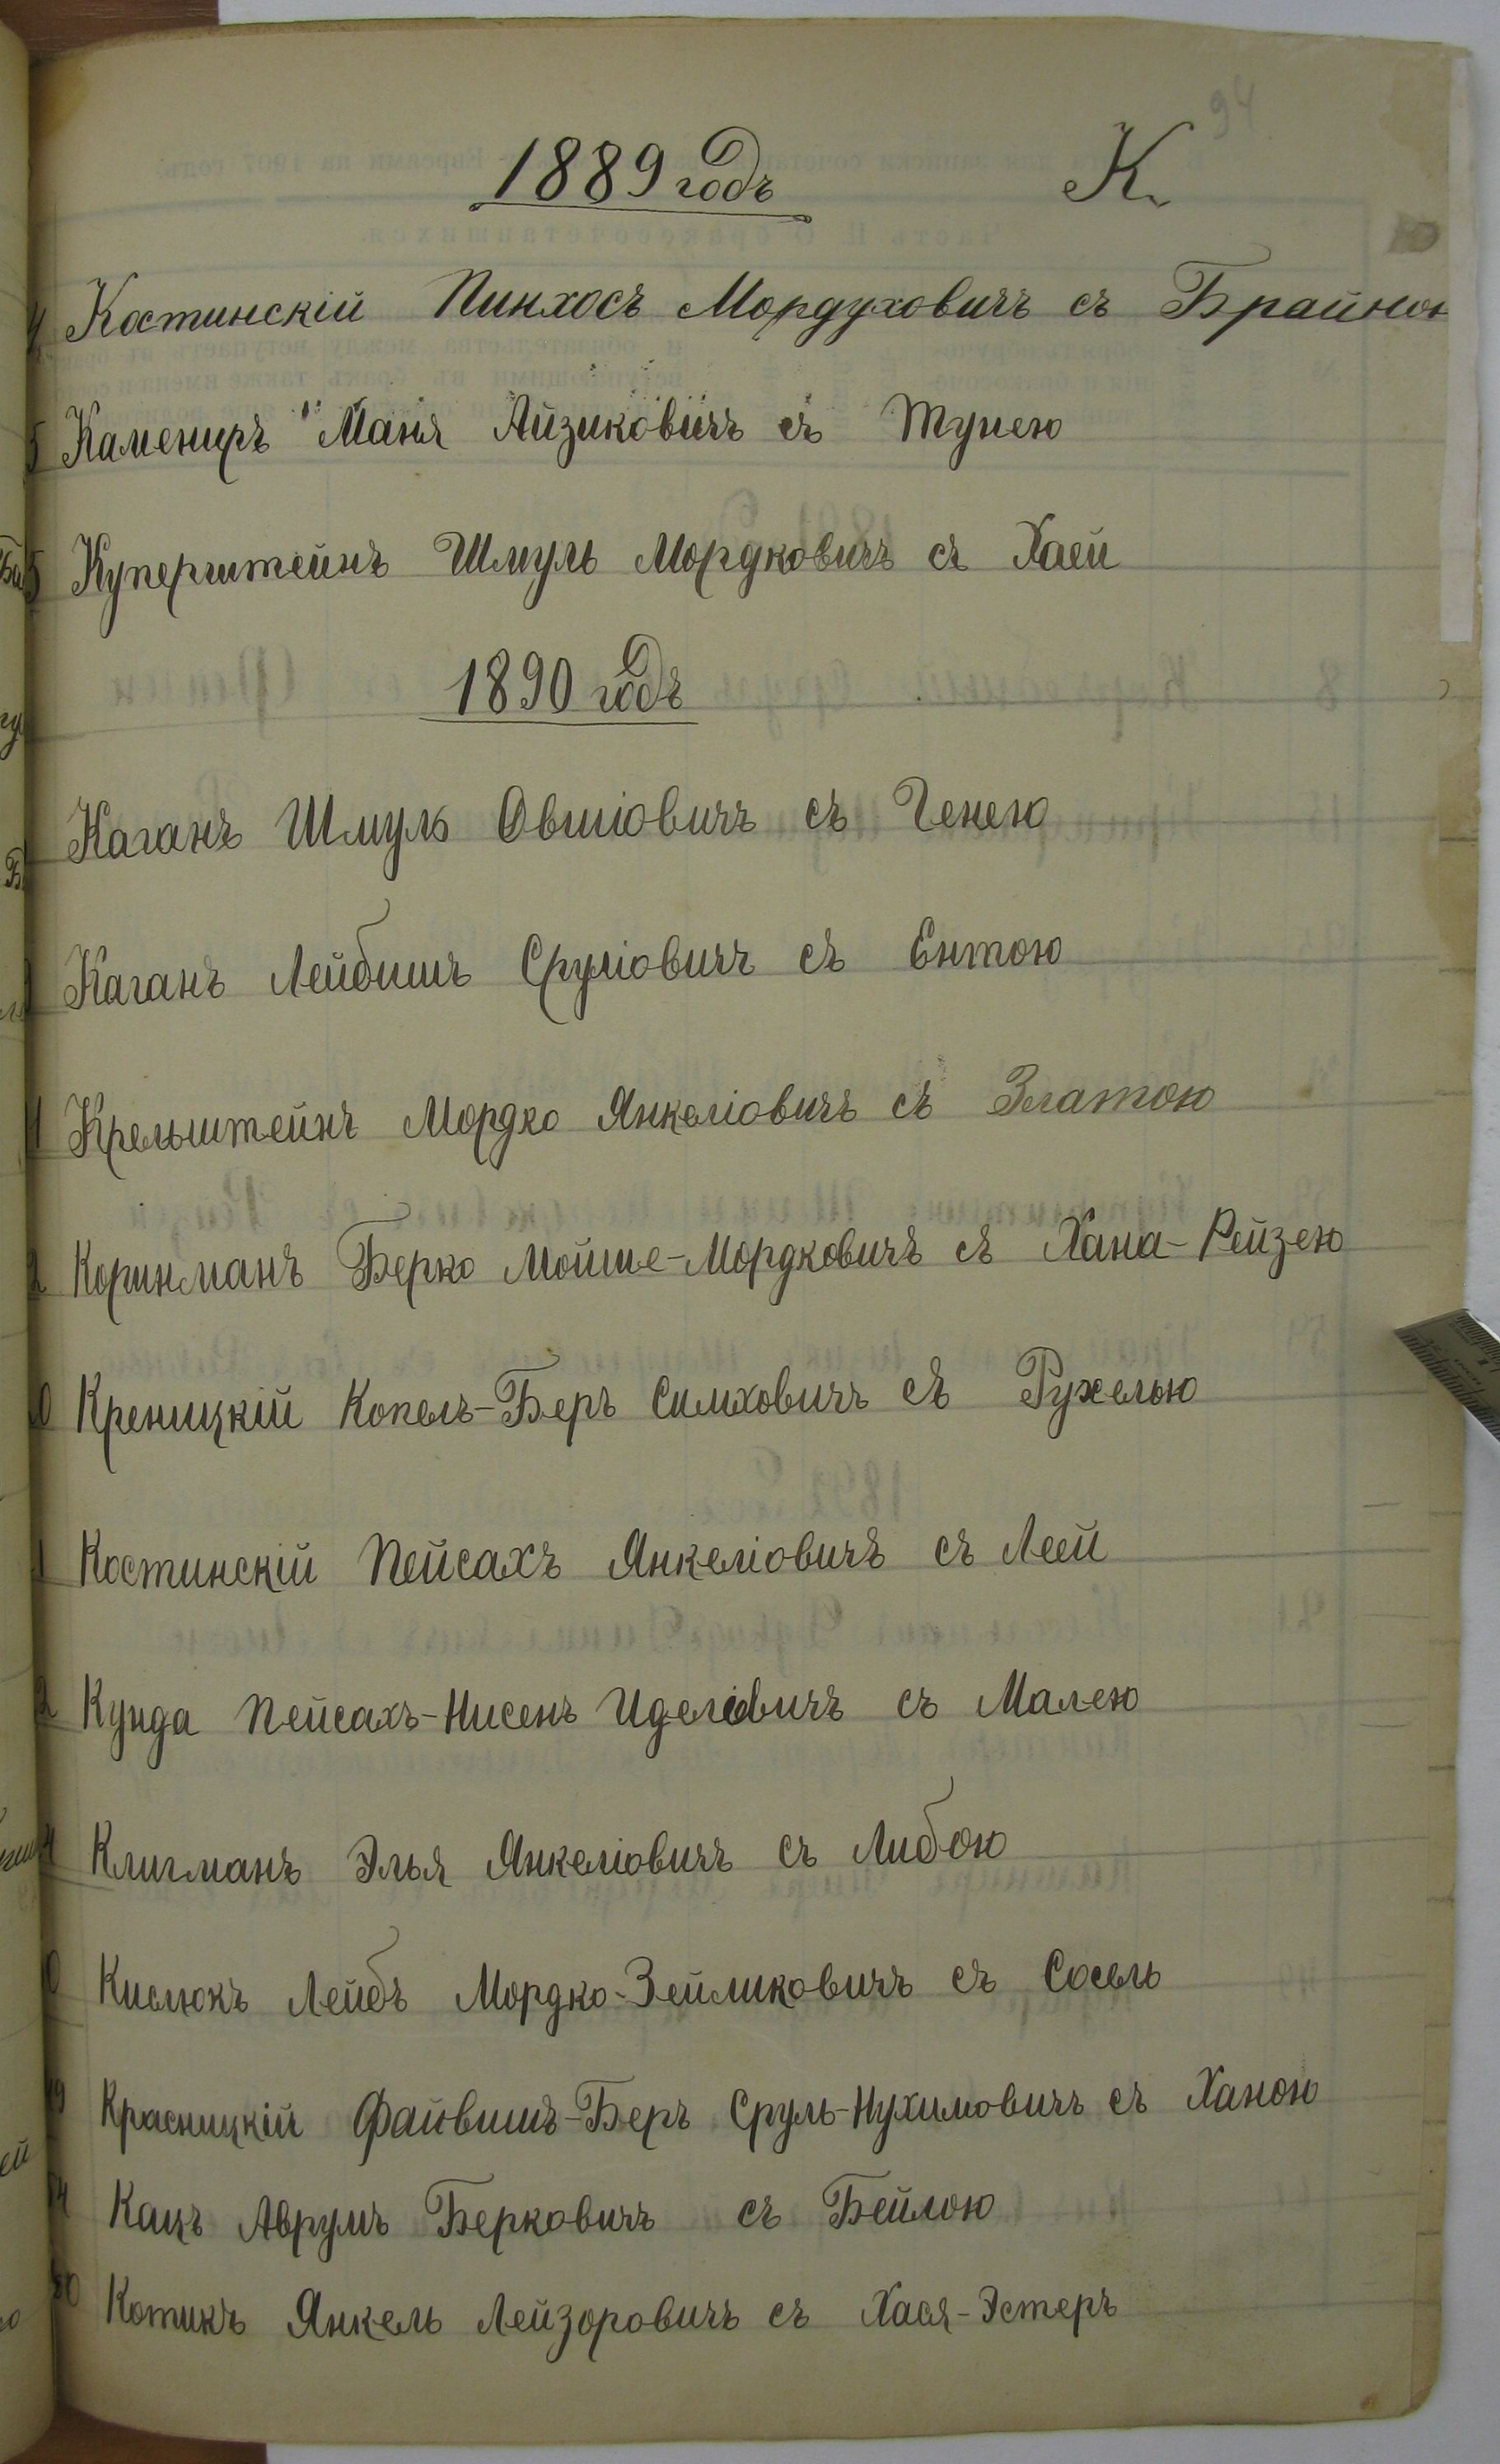 94
1889 годъ К.
4 Костинскій Пинхосъ Мордуховичъ съ Брайною
5 Камениръ Маня Айзиковичъ съ Тунею
5 Куперштейнъ Шмуль Мордковичъ съ Хаей
1890 годъ
Каганъ Шмуль Овшіовичъ съ Генею
Каганъ Лейбишъ Сруліовичъ съ Ентою
1 Крельштейнъ Мордко Янкеліовичъ съ Златою
2 Коринманъ Берко Мойше-Мордковичъ съ Хана-Рейзею
0 Креницкій Копель-Беръ Симховичъ съ Рухелью
1 Костинскій Пейсахъ Янкеліовичъ съ Леей
2 Кунда Пейсахъ-Нисенъ Иделіовичъ съ Малею
4 Клигманъ Элья Янкеліовичъ съ Либою
0 Кислюкъ Лейбъ Мордко-Зейликовичъ съ Сосель
9 Красницкій Файвишъ-Беръ Сруль-Нухимовичъ съ Ханою
4 Кацъ Аврумъ Берковичъ съ Бейлою
80 Котикъ Янкель Лейзоровичъ съ Хася-Эстеръ